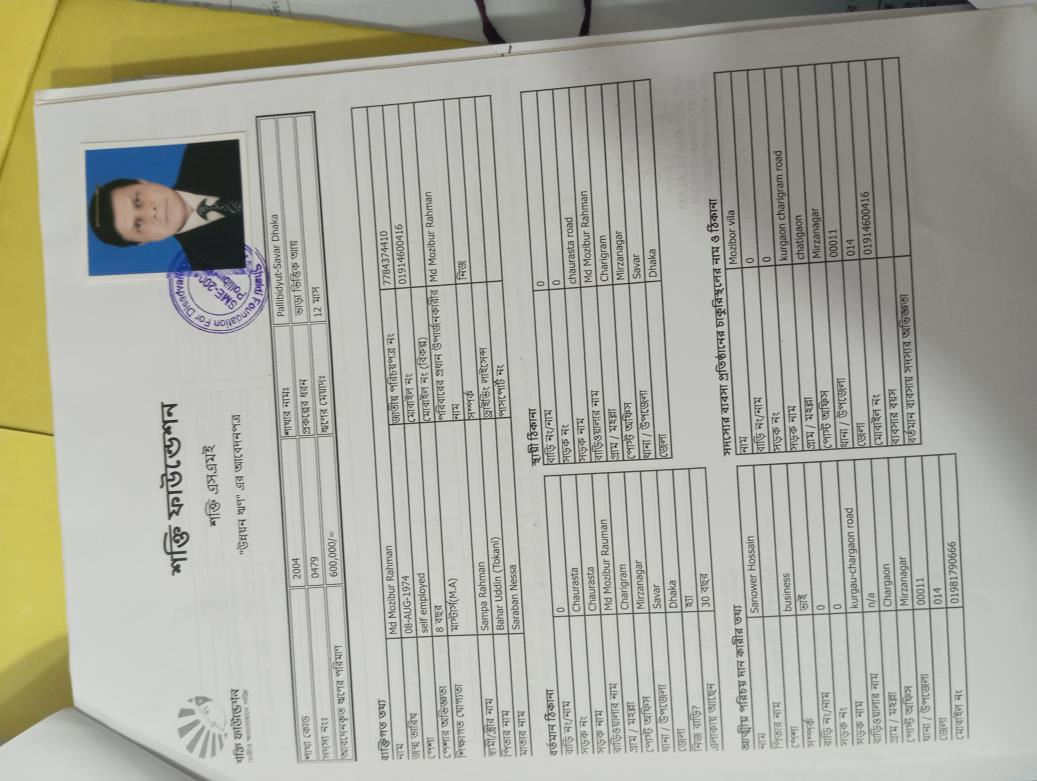 শক্তি ফাউন্ডেশন
শক্তি এসএমই
"উন্নয়ন ঋণ" এর আবেদনপত্র
শক্তি ফাউন্ডেশন
Shakti Foundation For Disadvan
SME-200
Pallibid
শাখা কোড 2004 শাখার নামঃ Pallibidyut-Savar Dhaka
সদস্য নংঃ 0479 প্রকল্পের ধরন ভাড়া ভিত্তিক আয়
আবেদনকৃত ঋণের পরিমাণ 600,000/= ঋণের মেয়াদঃ 12 মাস
ব্যক্তিগত তথ্য
নাম Md Mozibur Rahman জাতীয় পরিচয়পত্র নং 7784374410
জন্ম তারিখ 08-AUG-1974 মোবাইল নং 01914600416
পেশা self employed মোবাইল নং (বিকল্প)
পেশার অভিজ্ঞতা 8 বছর পরিবারের প্রধান উপার্জনকারীর নাম Md Mozibur Rahman
শিক্ষাগত যোগ্যতা মাস্টার্স(M.A) সম্পর্ক নিজ
স্বামী/স্ত্রীর নাম Sampa Rahman ড্রাইভিং লাইসেন্স
পিতার নাম Bahar Uddin (Tokani) পাসপোর্ট নং
মাতার নাম Saraban Nessa
বর্তমান ঠিকানা
বাড়ি নং/নাম 0
সড়ক নং Chaurasta
সড়ক নাম Chaurasta
বাড়িওয়ালার নাম Md Mozibur Rauman
গ্রাম / মহল্লা Charigram
পোস্ট অফিস Mirzanagar
থানা / উপজেলা Savar
জেলা Dhaka
নিজ বাড়ি? হ্যা
এলাকায় আছেন 30 বছর
স্থায়ী ঠিকানা
বাড়ি নং/নাম 0
সড়ক নং 0
সড়ক নাম chaurasta road
বাড়িওয়ালার নাম Md Mozibur Rahman
গ্রাম / মহল্লা Charigram
পোস্ট অফিস Mirzanagar
থানা / উপজেলা Savar
জেলা Dhaka
আত্মীয় পরিচয় দান কারীর তথ্য
নাম Sanower Hossain
পিতার নাম
পেশা business
সম্পর্ক ভাই
বাড়ি নং/নাম 0
সড়ক নং 0
সড়ক নাম kurgau-chargaon road
বাড়িওয়ালার নাম n/a
গ্রাম / মহল্লা Chargaon
পোস্ট অফিস Mirzanagar
থানা / উপজেলা 00011
জেলা 014
মোবাইল নং 01981790666
সদস্যের ব্যবসা প্রতিষ্ঠানের/চাকুরিস্থলের নাম ও ঠিকানা
নাম Mozibor vila
বাড়ি নং/নাম 0
সড়ক নং 0
সড়ক নাম kurgaon charigram road
গ্রাম / মহল্লা chatigaon
পোস্ট অফিস Mirzanagar
থানা / উপজেলা 00011
জেলা 014
মোবাইল নং 01914600416
ব্যবসার বয়স
বর্তমান ব্যবসায় সদস্যর অভিজ্ঞতা